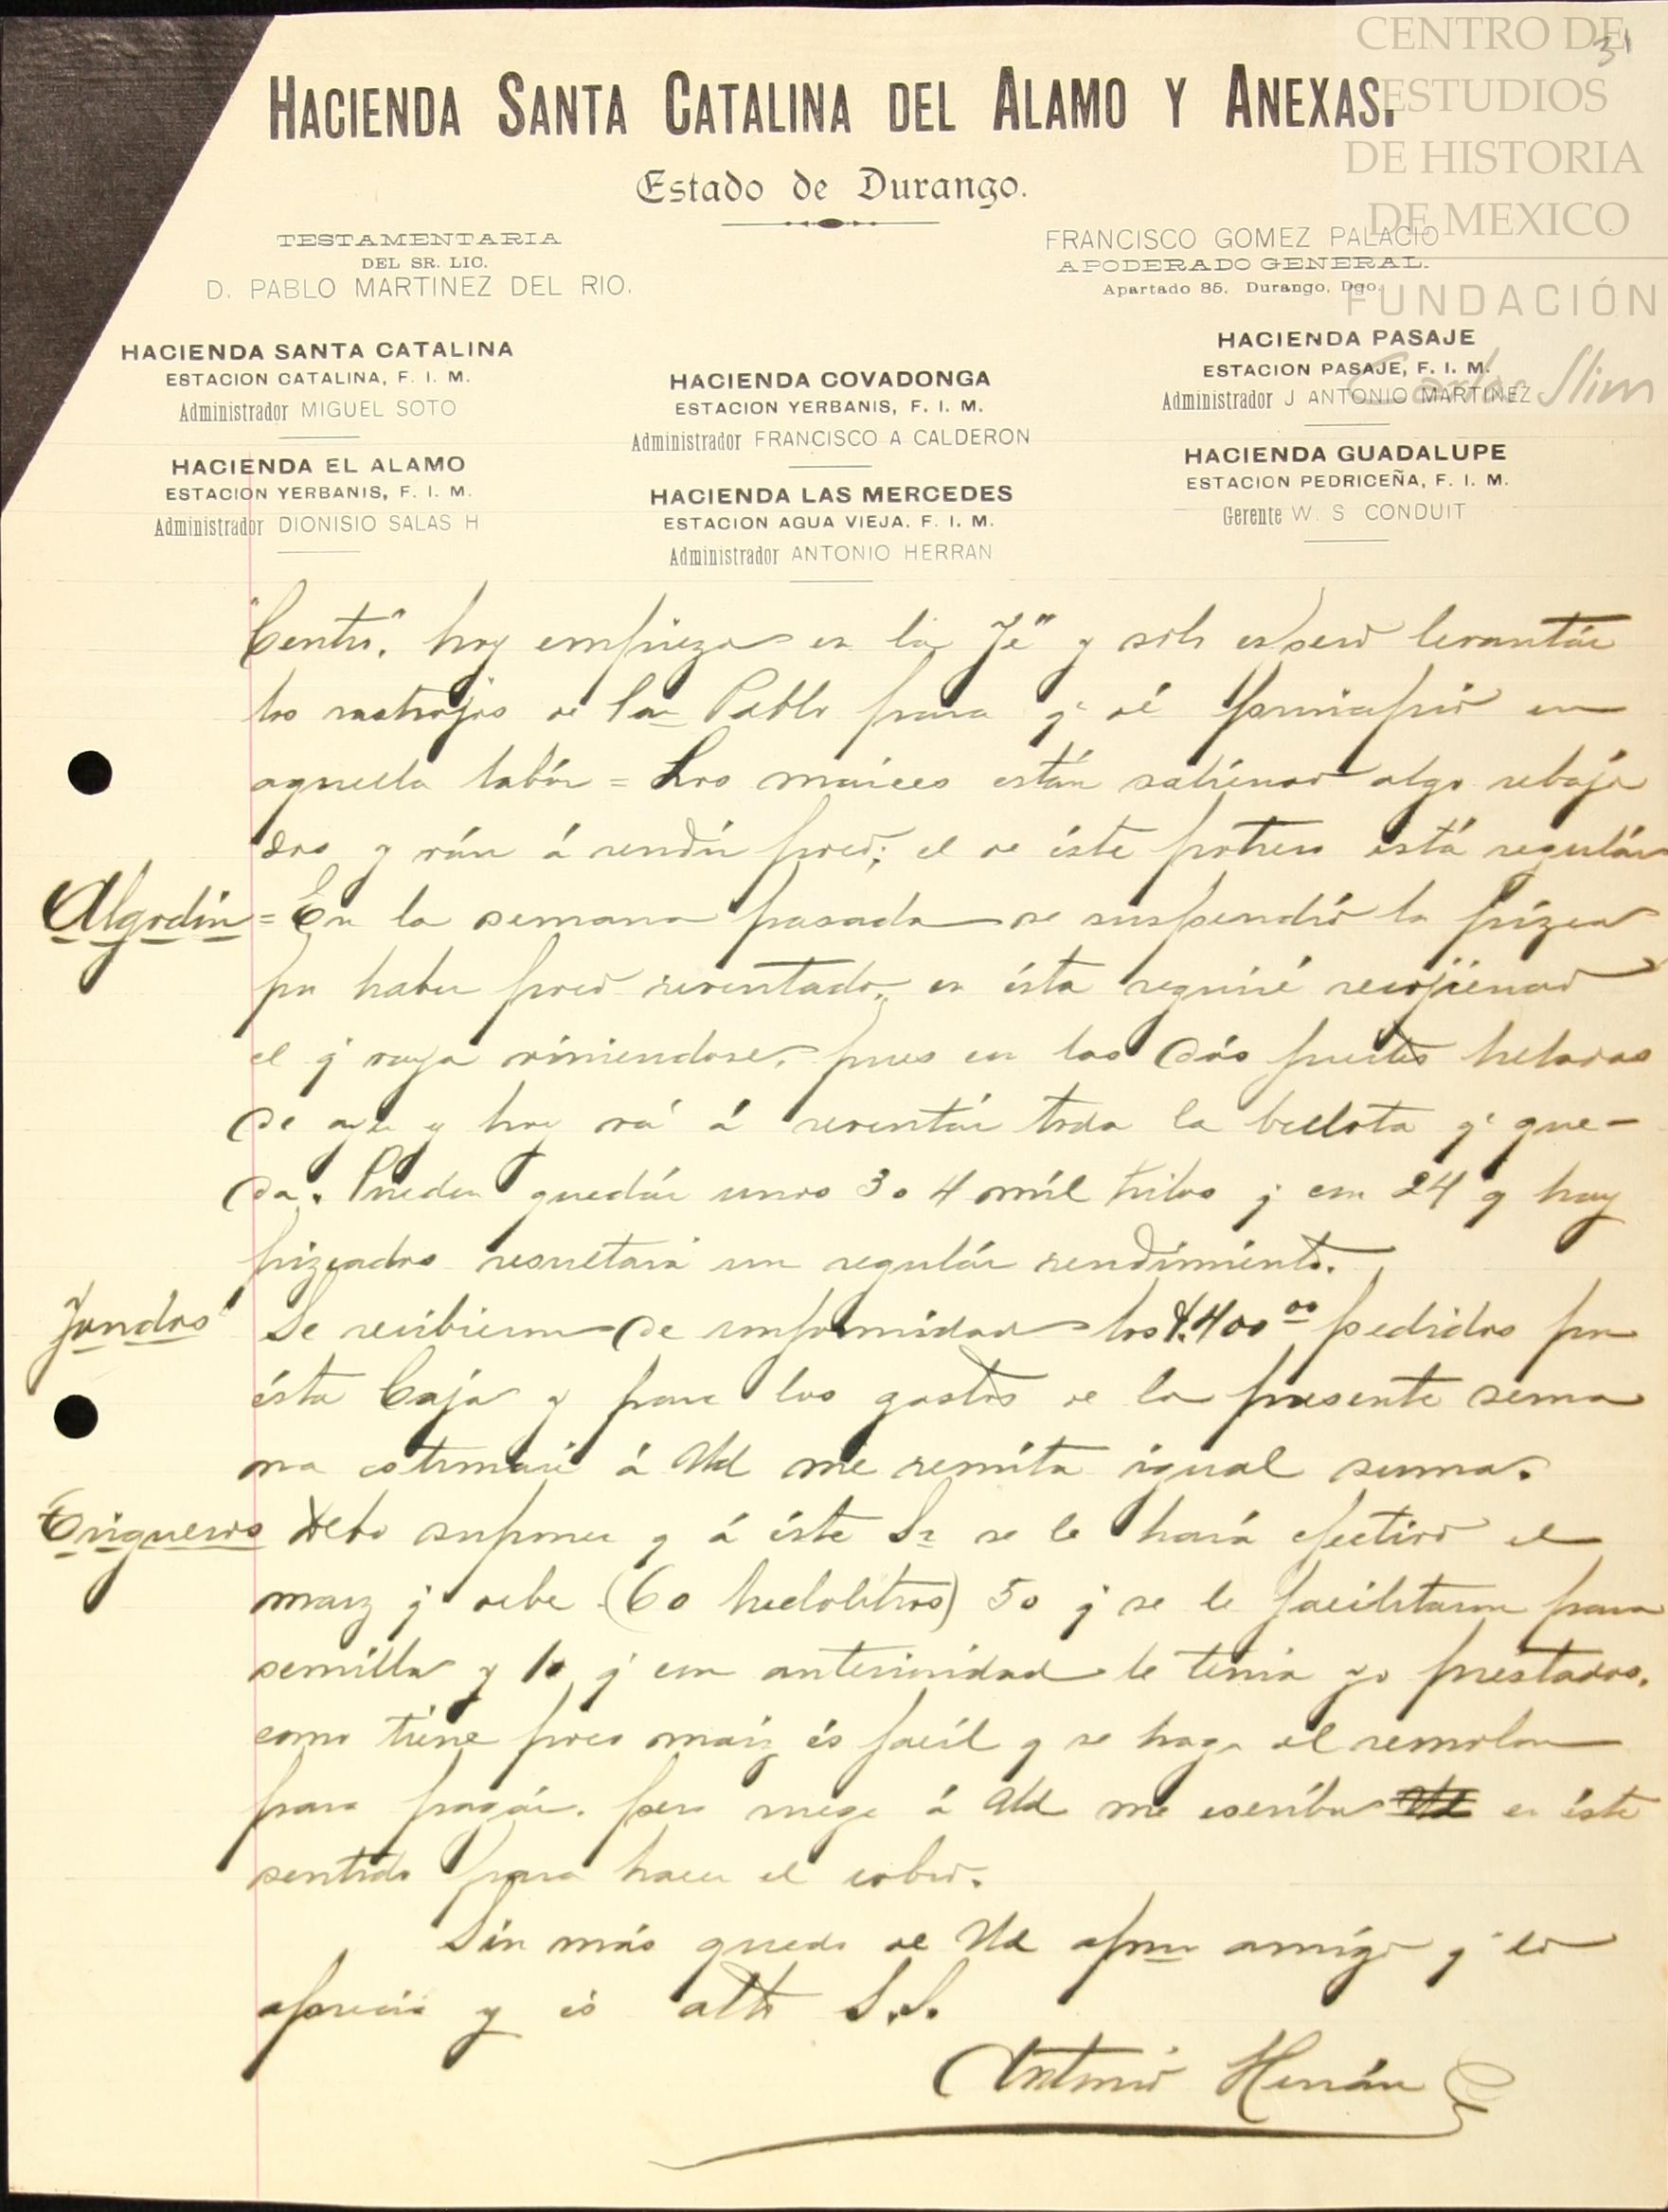 31
CENTRO DE
ESTUDIOS
DE HISTORIA
DE MEXICO
FUNDACIÓN
Carlos Slim
HACIENDA SANTA CATALINA DEL ALAMO Y ANEXAS.
Estado de Durango.
TESTAMENTARIA
DEL SR. LIC.
D. PABLO MARTINEZ DEL RIO.
FRANCISCO GOMEZ PALACIO
APODERADO GENERAL.
Apartado 85. Durango, Dgo.
HACIENDA SANTA CATALINA
ESTACION CATALINA, F. I. M.
Administrador MIGUEL SOTO
HACIENDA EL ALAMO
ESTACION YERBANIS, F. I. M.
Administrador DIONISIO SALAS H
HACIENDA COVADONGA
ESTACION YERBANIS, F. I. M.
Administrador FRANCISCO A CALDERON
HACIENDA LAS MERCEDES
ESTACION AGUA VIEJA. F. I. M.
Administrador ANTONIO HERRAN
HACIENDA PASAJE
ESTACION PASAJE, F. I. M.
Administrador J ANTONIO MARTINEZ
HACIENDA GUADALUPE
ESTACION PEDRICEÑA, F. I. M.
Gerente W. S CONDUIT
"Centro", hoy empieza en la "Fé" y solo espero levantár
los rastrojos de San Pablo para q. dé principio en
aquella labór = Los maices están saliendo algo rebaja
dos y ván á rendir poco; el de éste potrero está regulár
Algodón = En la semana pasada se suspendió la pizca
por haber poco reventado, en ésta seguiré recojiendo
el q. vaya viniendose, pues en las dós fuertes heladas
de ayer y hoy vá á reventár toda la bellota q. que-
da. Pueden quedár unos 3 o 4 mil kilos y con 24 q hay
pizcados resultará un regulár rendimiento.
Fondos Se recibieron de conformidad los $.400 00 pedidos por
ésta Caja y para los gastos de la presente sema
na estimaré á Ud me remita igual suma.
Trigueros Debo suponer q á éste Sr se le hará efectivo el
maiz q. debe (60 hectolitros) 50 q. se le facilitaron para
semilla y 10 q. con anterioridad le tenia yo prestados,
como tiene poco maiz és facíl q se haga el remolon
para pagár, pero ruego á Ud me escriba en éste
sentido para hacer el cobro.
Sin más quedo de Ud afmo amigo q. lo
aprecia y és atto S.S.
Antonio Herrán